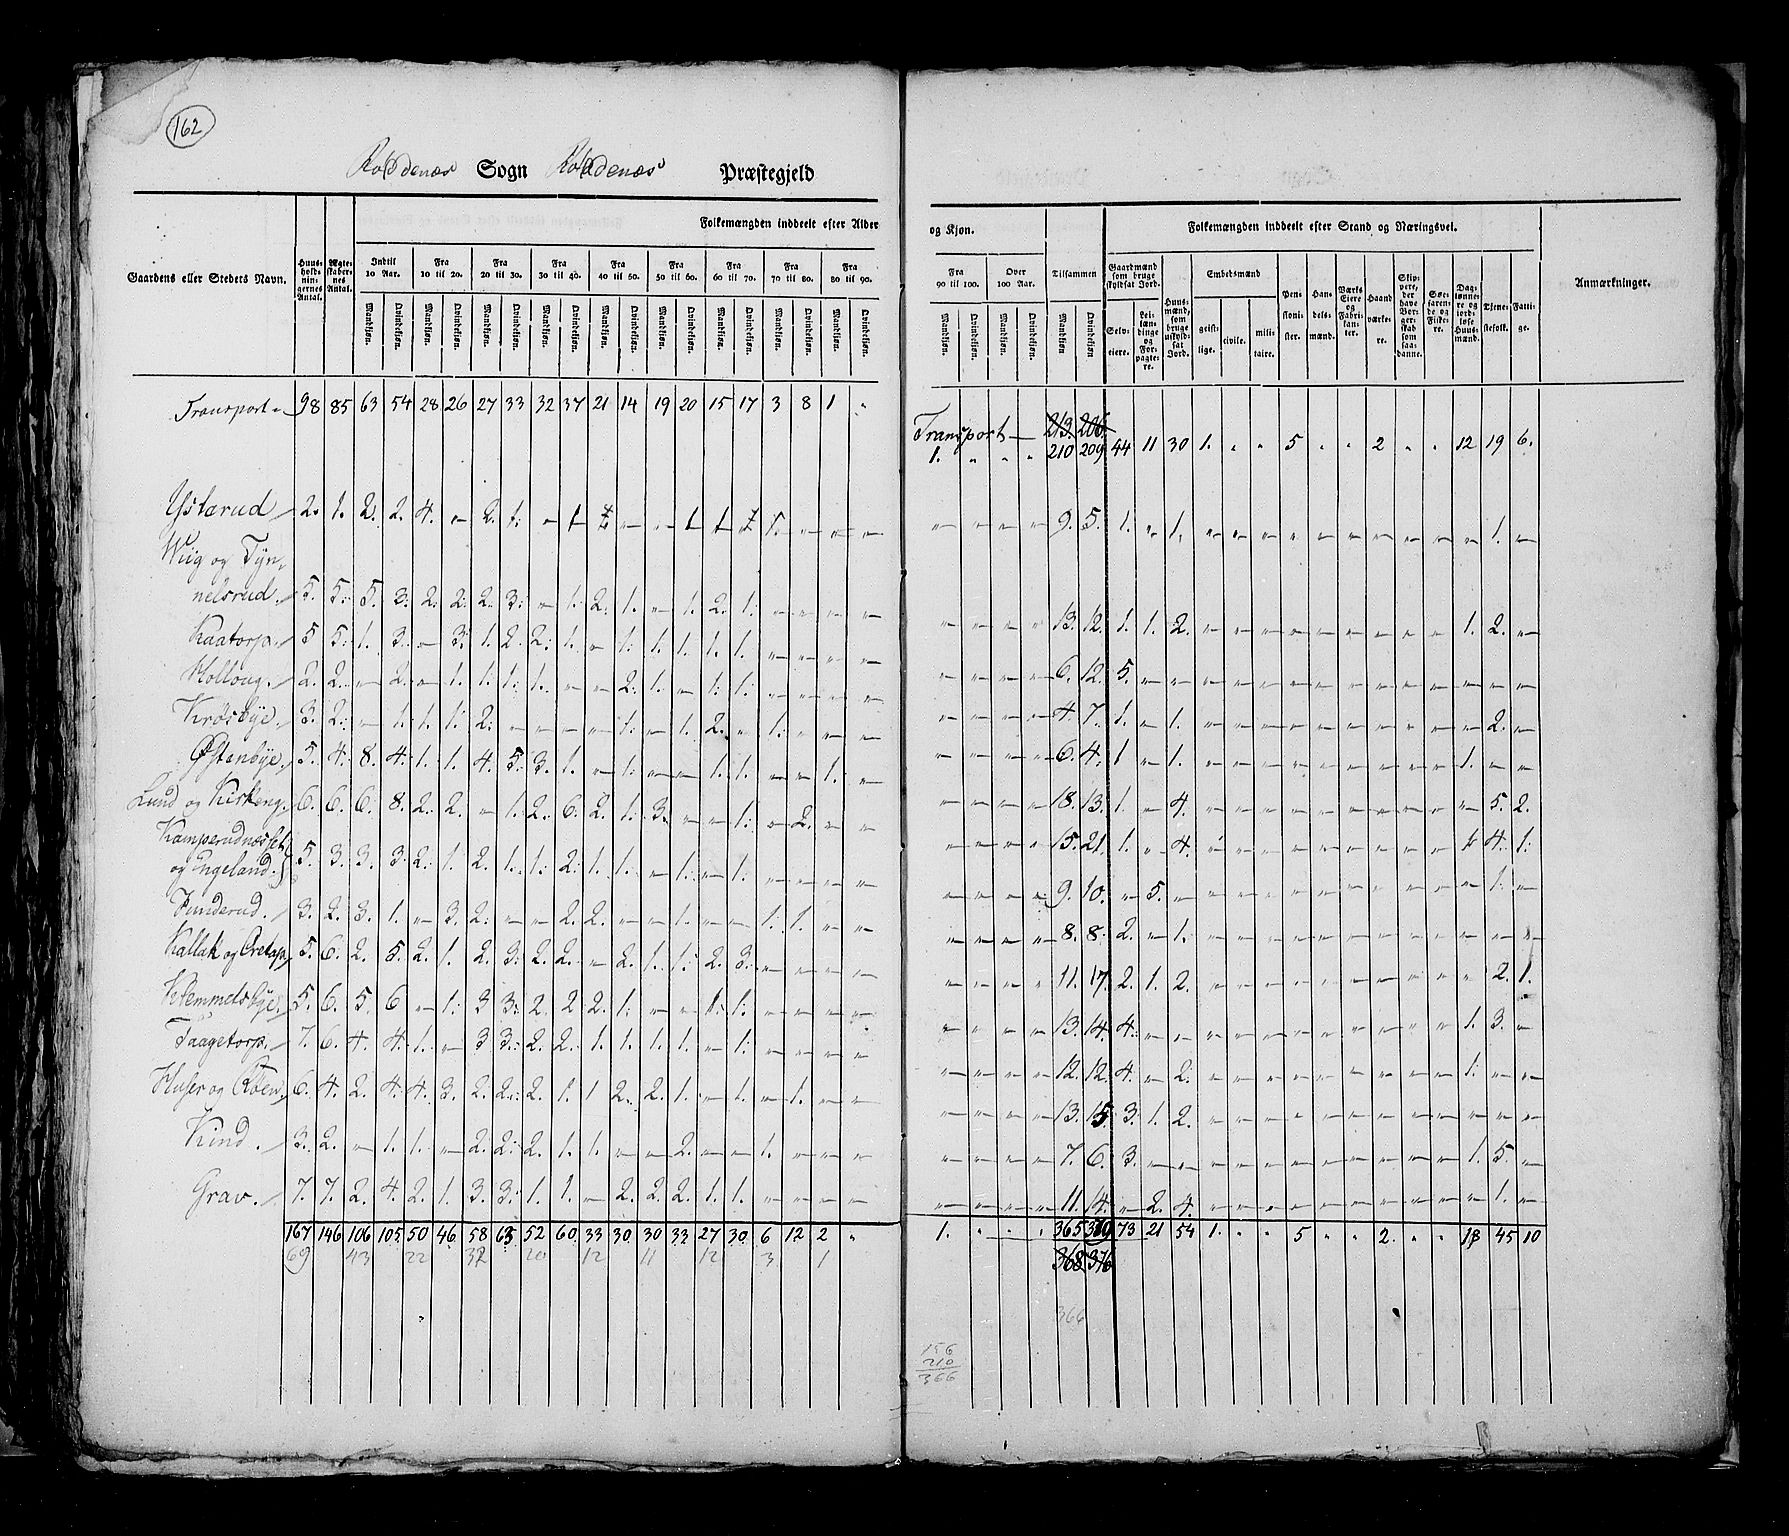 162
Sogn Præstegjeld
Folkemængden inddeelt efter Alder og Kjøn. Folkemængden inddeelt efter Stand og Næringsvei.
Gaardens eller Steders Navn. Huus-holdningernes Antal. Ægteskabernes Antal. Indtil 10 Aar. Fra 10 til 20. Fra 20 til 30. Fra 30 til 40. Fra 40 til 50. Fra 50 til 60. Fra 60 til 70. Fra 70 til 80. Fra 80 til 90. Fra 90 til 100. Over 100 Aar. Tilsammen Gaardmænd som bruge skyldsat Jord. Huusmænd, som bruge uskyldsat Jord. Embedsmænd Pensionister. Handelsmænd. Værks Eiere og Fabrikanter. Haandværkere. Skippere, der have Borgerskab som saadanne. Søefarende og Fiskere. Dagslønnere og jordløse Huusmænd. Tjenestefolk. Fattige. Anmærkninger.
Mandkjøn. Qvindekjøn. Selveiere. Leilændinge og Forpagtere. geistlige. civile. militaire.
Transport 98 85 63 54 28 26 27 33 32 37 21 14 19 20 15 17 3 8 1 "
Transport 213. 206.
1. " " " 210 209 44 11 30 1. " " 5 " " 2 " " 12 19 6.
Ystarud 2. 1. 2. 2. 4. — 2. 1. — 1 — — — 1 1 1. — — — — — — — 9. 5. 1. " 1. — — — — — — — — — — 1. —
Wiig og Tyn-
nelsrud. 5. 5. 5. 3. 2. 2. 2. 3. — 1. 2. 1. — 1. 2. 1. — — — — — — — — 13. 12. 1. 1. 2. — — — — — — — — — 1. 2. —
Kaatorp. 5 5. 1. 3. — 3. 1. 2. 2. 1. — 1. 1. 1. 1. 1. — — — — — — — — 6. 12. 5. — — — — — — — — — — — — — —
Holloug. 2. 2. — 2. — 1. 1. 1. 1. — — 2. 1. — 1. 1. — — — — — — — — 4. 7. 1. — 1. — — — — — — — — — — 2. —
Krosbye. 3. 2. — 1. 1. 1. 2. — — — — 1. — 1. 2. — 1. — — — — — — — 6. 4. 1 — 1. — — — — — — — — — 1. — —
Østenbye. 5. 4. 8. 4. 1. 1. 4. 5. 3. 1. — 1. — — 1. 1. — — 1. — — — — — 18. 13. 1. — 4. — — — — — — — — — — 5. 2.
Lund og Kirkeng. 6. 6. 6. 8. 2. 2. — 1. 2. 6. 2. 1. 3. — — 1. — 2. — — — — — — 15. 21. 1. — 4. — — — — — — — — — 4. 1.
Kamperudnæsset
og Engeland. 5. 3. 3. 3. 2. 1. 2. 1. 1. 2. 1. 1. — 1. — 1. — — — — — — — — 9. 10. — 5. — — — — — — — — — — — 1. —
Funderud. 3. 2. 3. 1. — 3. 2. — — 2. 2. — — 1. — — 1. 1. — — — — — — 8. 8. 2. — 1. — — — — — — — — — — — —
Kallak og 5. 6. 2. 5. 2. 1. 2. 3. 2. 2. — 2. 1. 1. 2. 3. — — — — — — — — 11. 17. 2. 1. 2. — — — — — — — — — — 2. 1.
Klemmetsbye. 5. 6. 5 6 — 1. 3 3. 2. 2. 2. 1. — — 1. 1. — — — — — — — — 13. 14. 4. — — — — — — — — — — — 1. 3. —
Taagetorp. 7. 6. 4. 4. 1. — 3 3. 2. 2. 1. 1. 1. 1. — 1. — — — — — — — — 12. 12. 4. — 2. — — — — — — — — — 1. — —
Huser og Roen. 6. 4. 2. 4. 4. 3. 2. 2. 2. 1. 1 2. 2. 1. — 1. — 1. — — — — — — 13. 15. 3. 1. 2. — — — — — — — — — — — —
Kind. 3. 2. — 1. 1. — 2. 2. 2. 1. 1. — — 2. — — 1. — — — — — — — 7. 6. 3. — — — — — — — — — — — 1. 5. —
Grav. 7. 7. 2. 4. 2. 1. 3. 3. 1. 1. — 2. 2. 2. 1. 1. — — — — — — — — 11. 14. — 2. 4. — — — — — — — — — — 1. —
167 146 106 105 50 46 58 63 52 60 33 30 30 33 27 30 6 12 2 " 1. " " " 365 73 21 54 1. " " 5 " " 2. " " 18 45 10
69 43 22 20 12 11 12 3 1 368 376
366
156
210
366